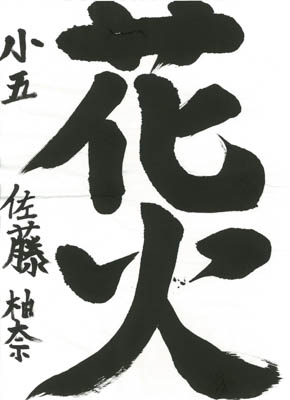 花火
小五 佐藤柚奈